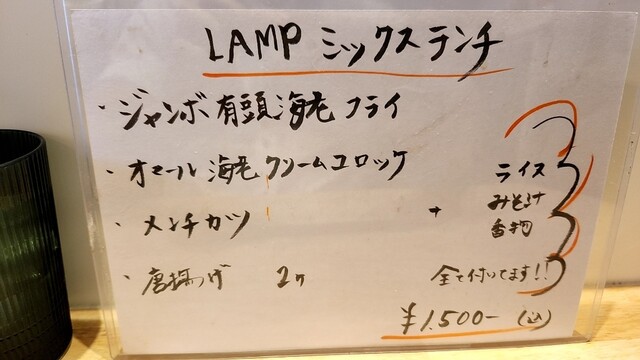 LAMP ミックスランチ
・ジャンボ有頭海老フライ
・オマール海老クリームコロッケ
・メンチカツ
・唐揚げ 2ヶ
+
ライス
みそ汁
香物
全て付いてます!!
¥1.500-(込)